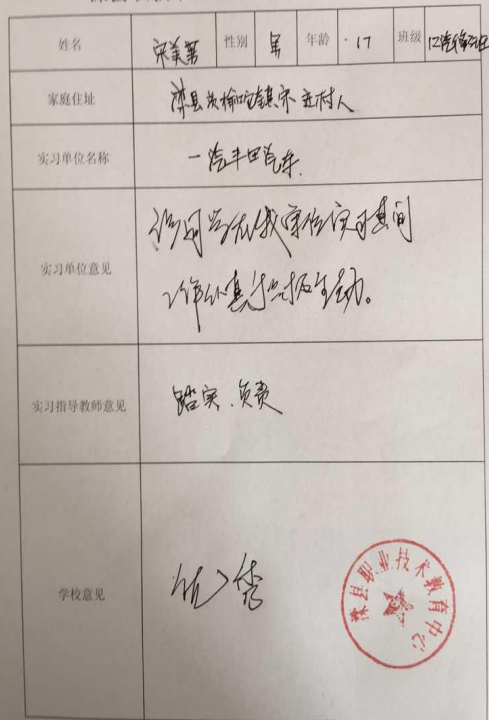 姓名 宋美 性别 男 年龄 17 班级
家庭住址 滦县 榆 镇宋 庄村人
实习单位名称 一汽丰田汽车.
实习单位意见
该同学在我单位实习其间
工作认真积极主动。
实习指导教师意见 踏实、负责
学校意见 优秀
滦县职业技术教育中心